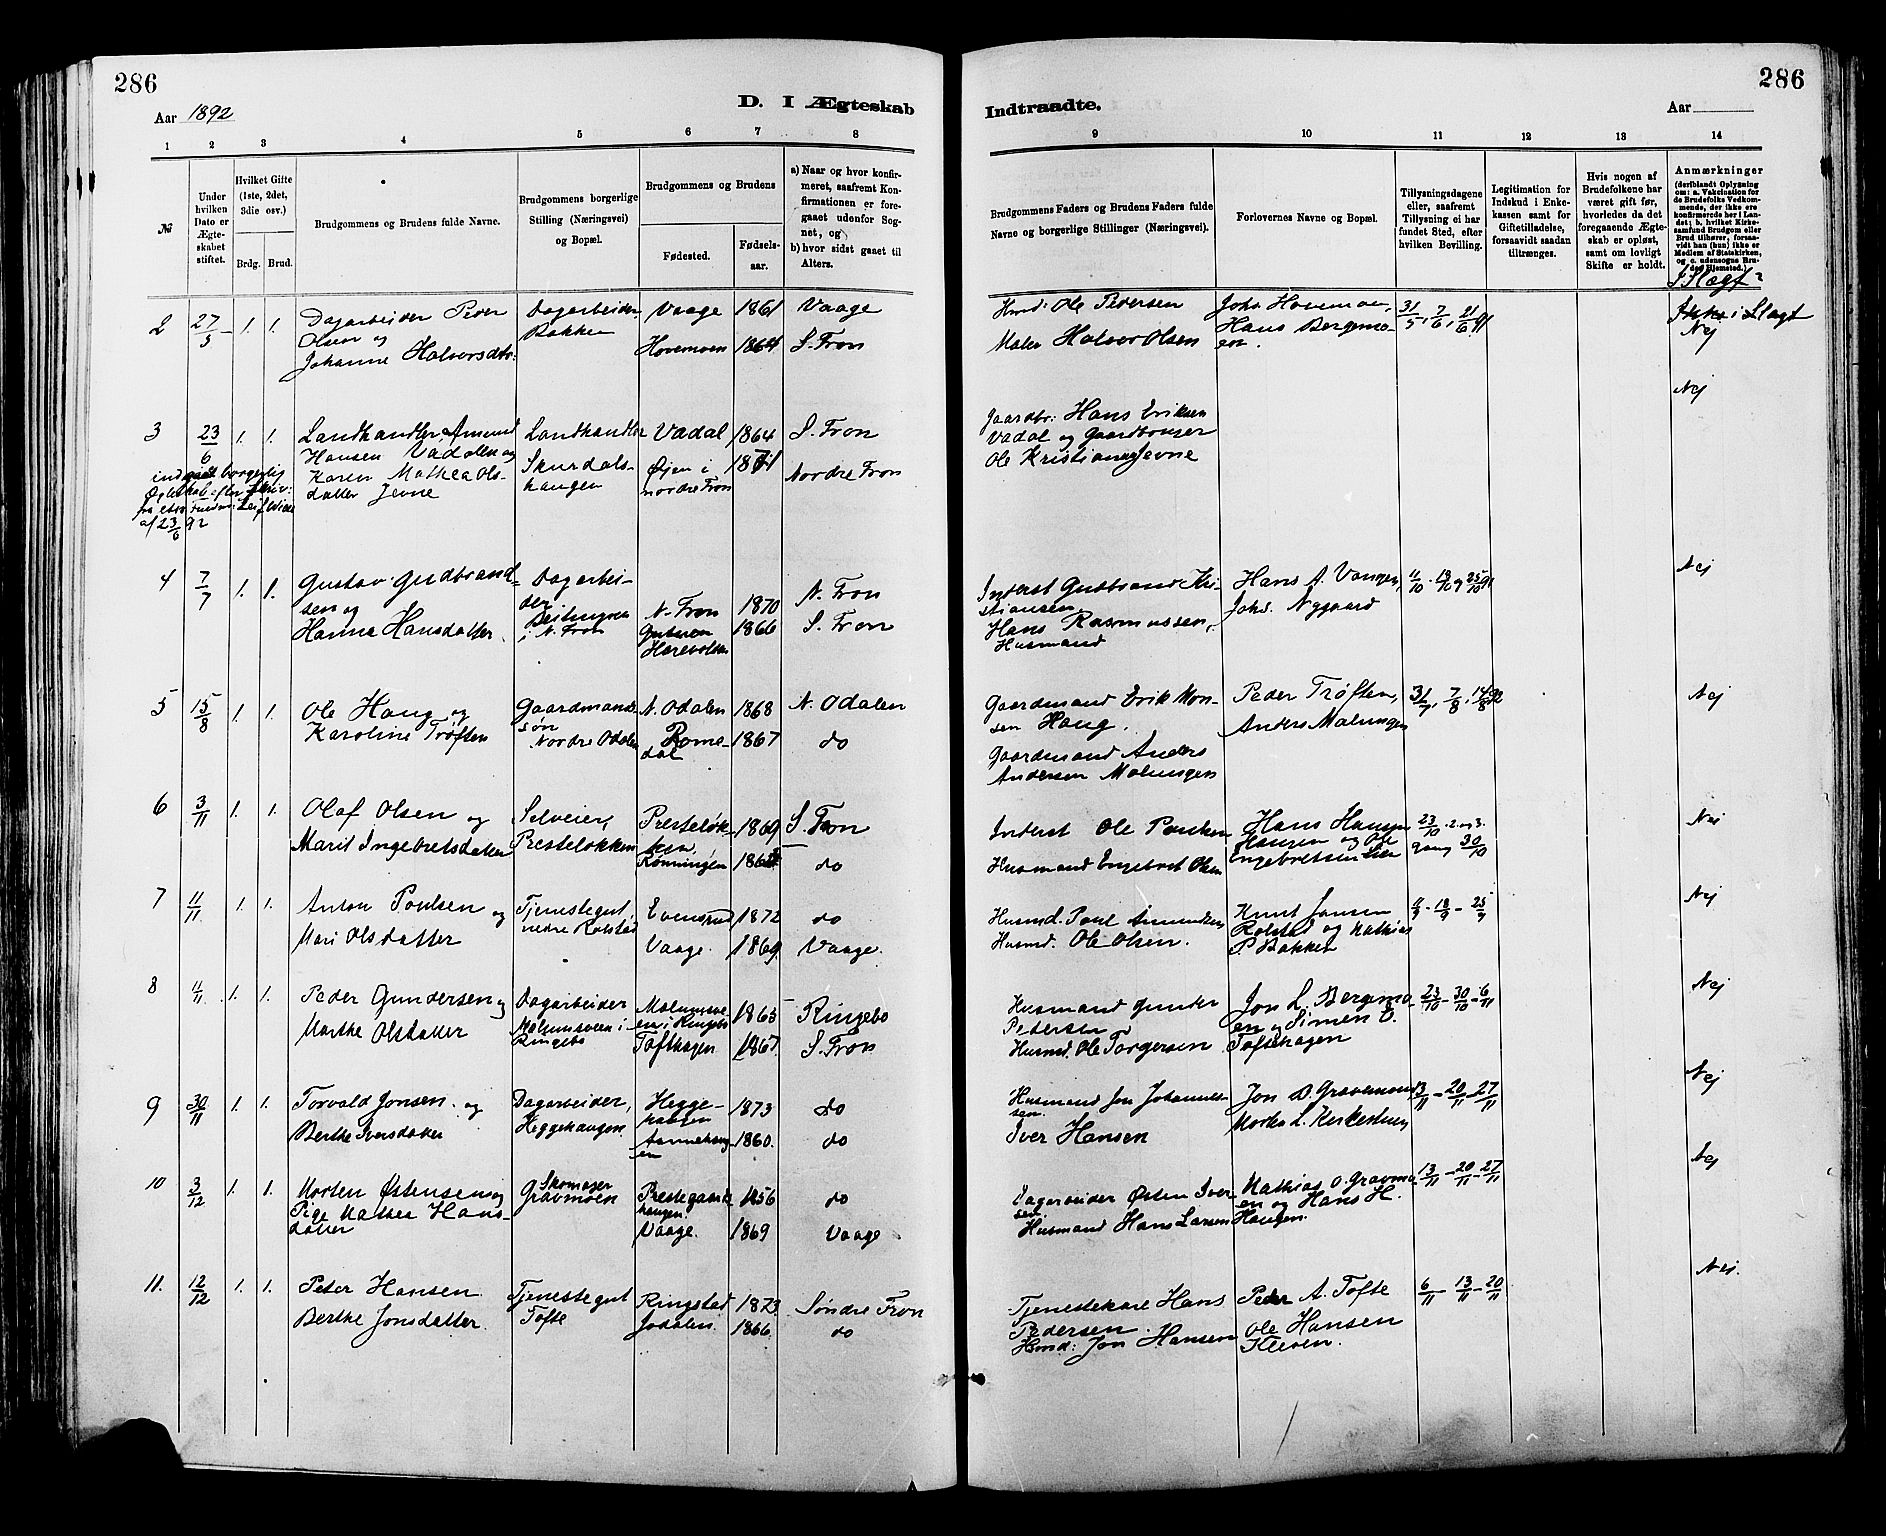 286
Aar 1892
D. I Ægteskab
1 2 3 4 5 6 7 8
№
Under hvilken Dato er Ægteskabet stiftet.
Hvilket Gifte (1ste, 2det, 3die osv.)
Brdg. Brud.
Brudgommens og Brudens fulde Navne.
Brudgommens borgerlige Stilling (Næringsvei) og Bopæl.
Brudgommens og Brudens
Fødested. Fødselsaar.
a) Naar og hvor konfirmeret, saafremt Konfirmationen er foregaaet udenfor Sognet, og
b) hvor sidst gaaet til Alters.
2 27/5 1. 1. Dagarbeider Peder Dagarbeider Vaage 1861 Vaage
Olsen og Bakken
Johanne Halvorsdtr. Hovemoen 1864 S. Fron
3 23/6 1. 1. Landhandler Amund Landhandler Vadal 1864 S. Fron
Hansen Vadalen og Skurdals-
Karen Mathea Ols- haugen Øjen i 1871 Nordre Fron
datter Jevne nordre Fron
indgaaet borgerlig
af 23/6 92
4 7/7 1. 1. Gustav Gudbrand- Dagarbei- N. Fron 1870 N. Fron
sen og der
Hanna Hansdatter i N. Fron 1866 S. Fron
5 15/8 1. 1. Ole Haug og Gaardmands- N. Odalen 1868 N. Odalen
Karoline Trøften søn Nordre Odalen Rome- 1867 do
dal
6 3/11 1. 1. Olaf Olsen og Selveier, Presteløk- 1869 S. Fron
Marit Ingebretsdatter Presteløkken ken.
Rønningen do
7 11/11 1. 1. Anton Poulsen og Tjenestegut, Evensrud 1872 do
Mari Olsdatter nedre Rolstad Vaage. 1869 Vaage.
8 11/11 1. 1. Peder Gundersen og Dagarbeider 1865 Ringebo
Marthe Olsdatter Ringebo Tofthagen 1867. S. Fron
9 30/11 1. 1. Torvald Jonsen og Dagarbeider, Hegge- 1873 do
Berthe Iversdatter Heggehaugen haugen
1860. do
10 3/12 1. 1. Morten Østensen og Skomager Prestegaards- 1856 do
Pige Mathea Hans- Gravmoen haugen.
datter Vaage. 1869 Vaage
11. 12/12 1. 1. Peter Hansen Tjenestegut Ringstad 1873 Søndre Fron
Berthe Jonsdatter. Tofte Jodalen. 1866. do
286
Indtraadte.
Aar
9 10 11 12 13 14
Brudgommens Faders og Brudens Faders fulde Navne og borgerlige Stillinger (Næringsvei).
Forlovernes Navne og Bopæl.
Tillysningsdagene eller, saafremt Tillysning ei har fundet Sted, efter hvilken Bevilling.
Legitimation for Indskud i Enkekassen samt for Giftetilladelse, forsaavidt saadan tiltrænges.
Hvis nogen af Brudefolkene har været gift før, hvorledes da det foregaaende Ægteskab er opløst, samt om lovligt Skifte er holdt.
Anmærkninger
(deriblandt Oplysning om: a. Vakcination for de Brudefolks Vedkommende, der ikke ere konfirmerede her i Landet; b. hvilket Kirkesamfund Brudgom eller Brud tilhører, forsaavidt han (hun) ikke er Medlem af Statskirken, og c. udensogns Brudes Hjemsted.)
I Slægt?
Hmd: Ole Pedersen Johs Hovemoen, 31/5, 7/6, 21/6 91 Ikke i Slægt
Maler Halvor Olsen Hans Bergemo- Nej
en.
Gaardbr: Hans Eriksen Nej
Vadal og Gaardbruger
Ole Kristiansen Jevne
Inderst Gudbrand Kri- Hans A. Vangen, 11/10 - 18/10 og 25/10 91 Nej
stiansen. Johs. Nygaard
Hans Rasmussen,
Husmand
Gaardmand Erik Mon- Peder Trøften, 31/7, 7/8, 14/8 92 Nej
sen Haug. Anders Malungen
Gaardmand Anders
Andersen Malungen
Inderst Ole Poulsen Hans Hansen 23/10 - 2. og 3. Nei
Haugen og Ole
Husmand Engebret Olsen Engebretsen Lien gang 30/10
Husmd. Poul Amundsen Knut Jansen 11/9 - 18/9 - 25/9 Nej
Husmd. Ole Olsen. Rolstad og Mathias
P. Bakken
Husmand Gunder Jon L. Bergemo- 23/10 - 30/10 - 6/11 Nej
Pedersen en og Simen O.
Husmd. Ole Torgersen Toftehagen
Husmand Jon Johannes- Jon B. Gravemoen 13/11 - 20/11 - 27/11 Nej
sen.
Iver Hansen Morten L. Kirkestuen
Dagarbeider Østen Iver- Mathias O. Gravmo- 13/11 - 20/11 - 27/11 Nej
sen en og Hans H.
Husmand Hans Larsen Haugen.
Tjenestekarl Hans Peder A. Tofte 6/11 - 13/11 - 20/11 Nei.
Pedersen. Ole Hansen
Hmd: Jon Hansen Kleven.